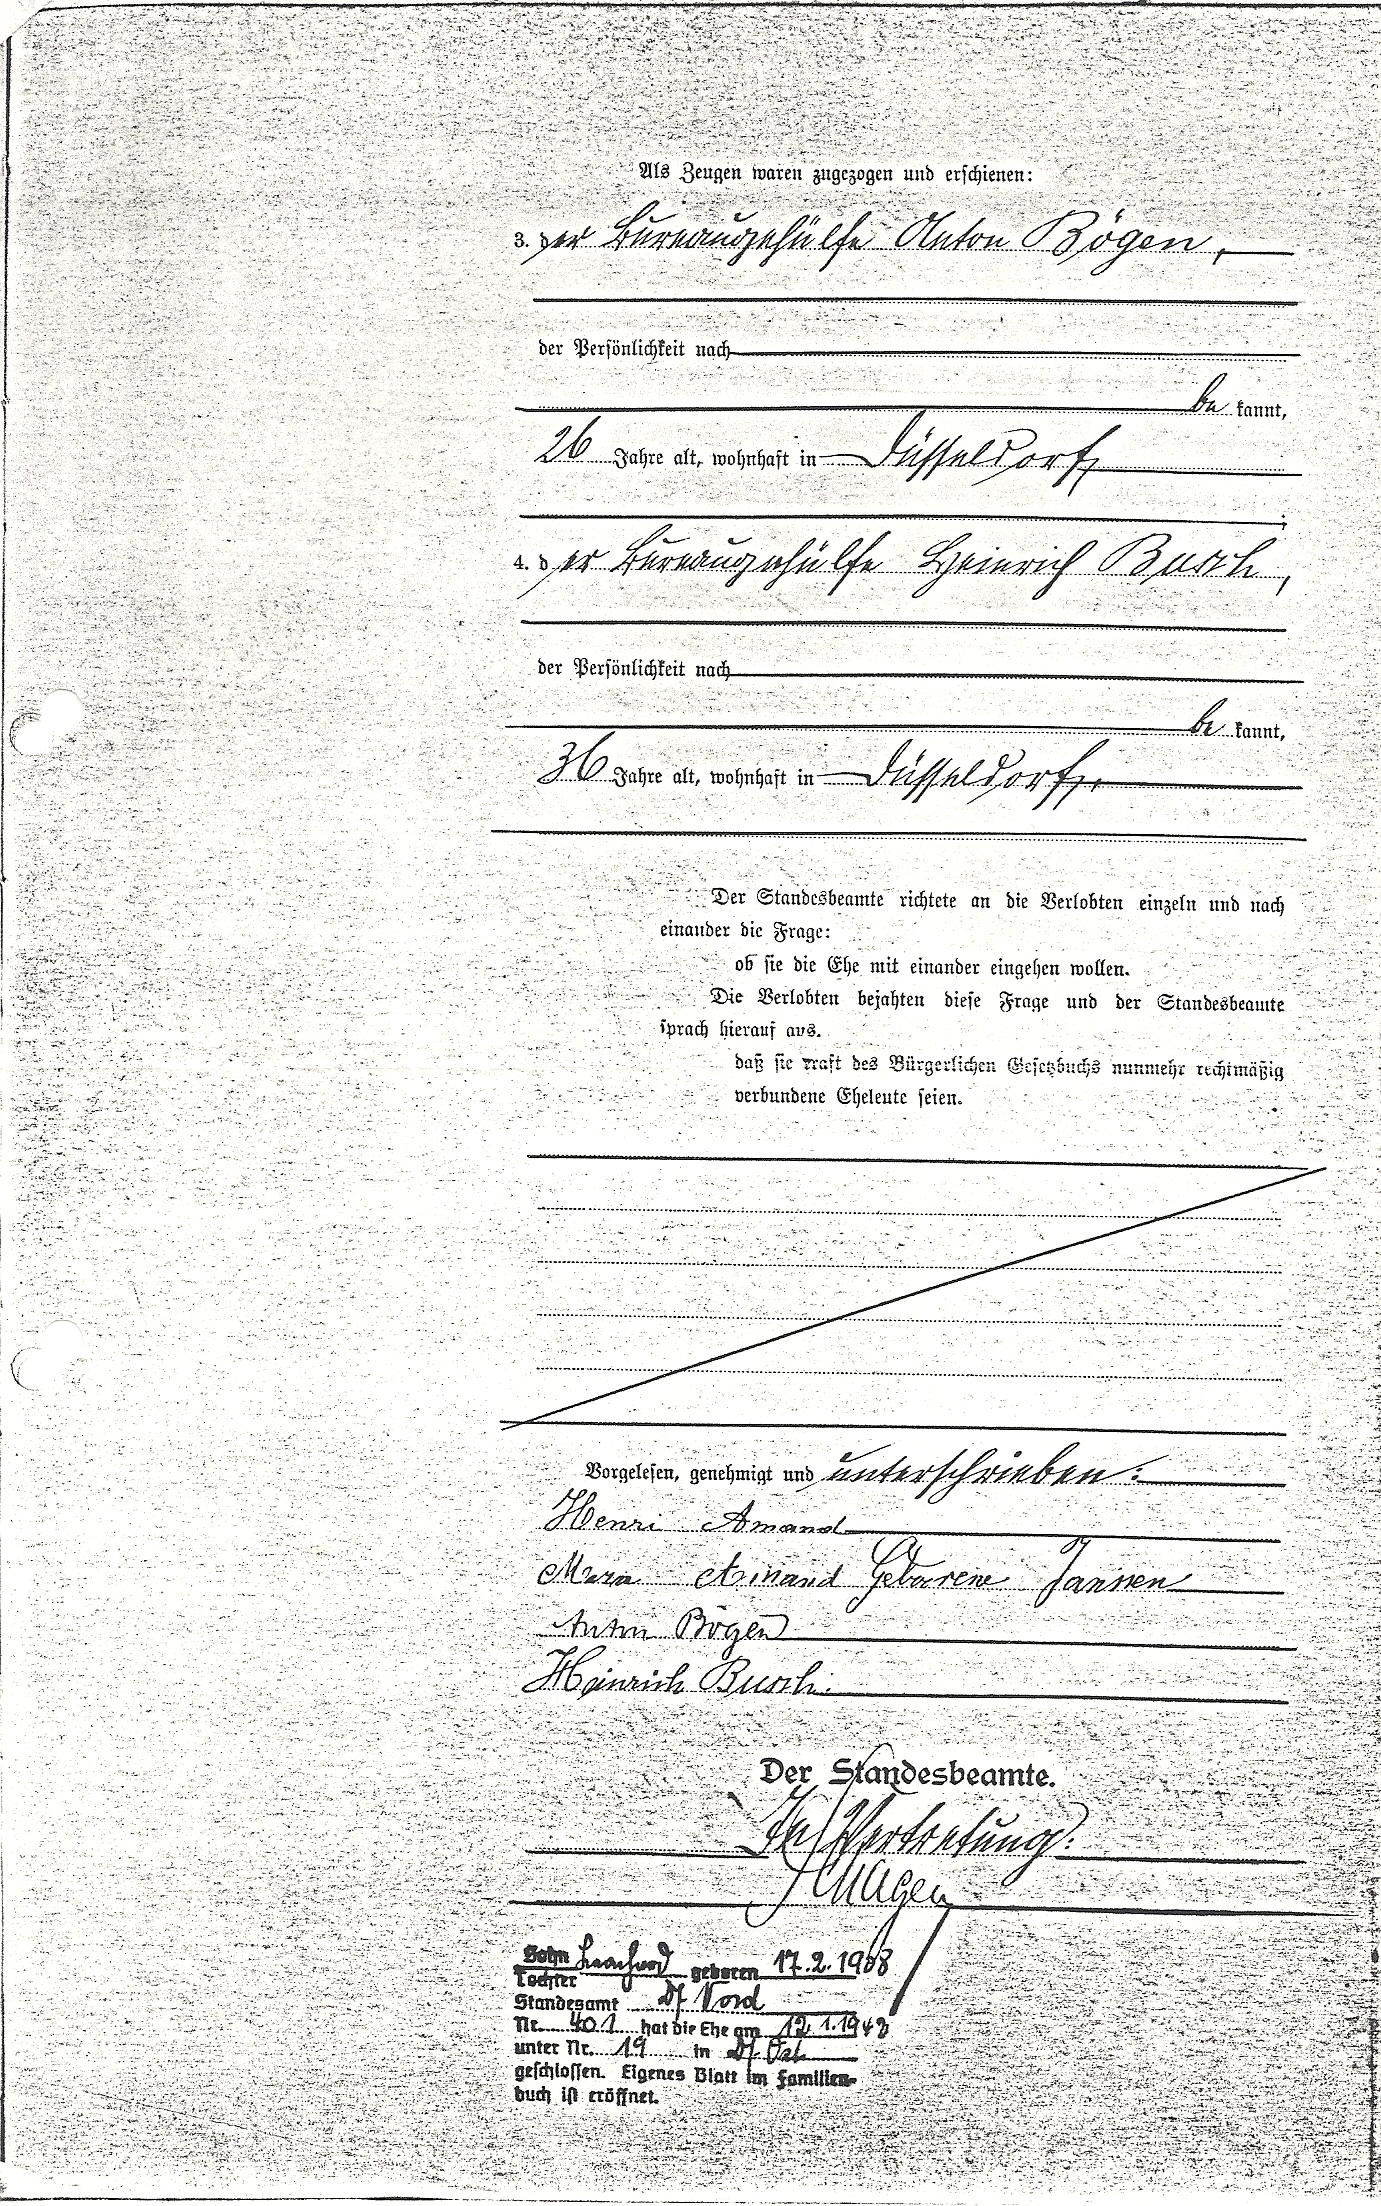 Als Zeugen waren zugezogen und erschienen:
3. der Bureaugehülfe Anton Bögen,
der Persönlichkeit nach
be kannt,
26 Jahre alt, wohnhaft in Düsseldorf,
;
4. der Bureaugehülfe Heinrich Busch,
der Persönlichkeit nach
be kannt,
36 Jahre alt, wohnhaft in Düsseldorf.
Der Standesbeamte richtete an die Verlobten einzeln und nach
einander die Frage:
ob sie die Ehe mit einander eingehen wollen.
Die Verlobten bejahten diese Frage und der Standesbeamte
sprach hierauf aus.
daß sie kraft des Bürgerlichen Gesetzbuchs nunmehr rechtmäßig
verbundene Eheleute seien.
Vorgelesen, genehmigt und unterschrieben:
Henri Amand
Amand Geborene Janssen
Anton Bögen
Heinrich Busch.
Der Standesbeamte.
In Vertretung:
Sohn geboren 17.2.1908
Tochter
Standesamt Df Nord
Nr. 401 hat die Ehe am 12.1.1943
unter Nr. 19 in Df Ost
geschlossen. Eigenes Blatt im Familien-
buch ist eröffnet.